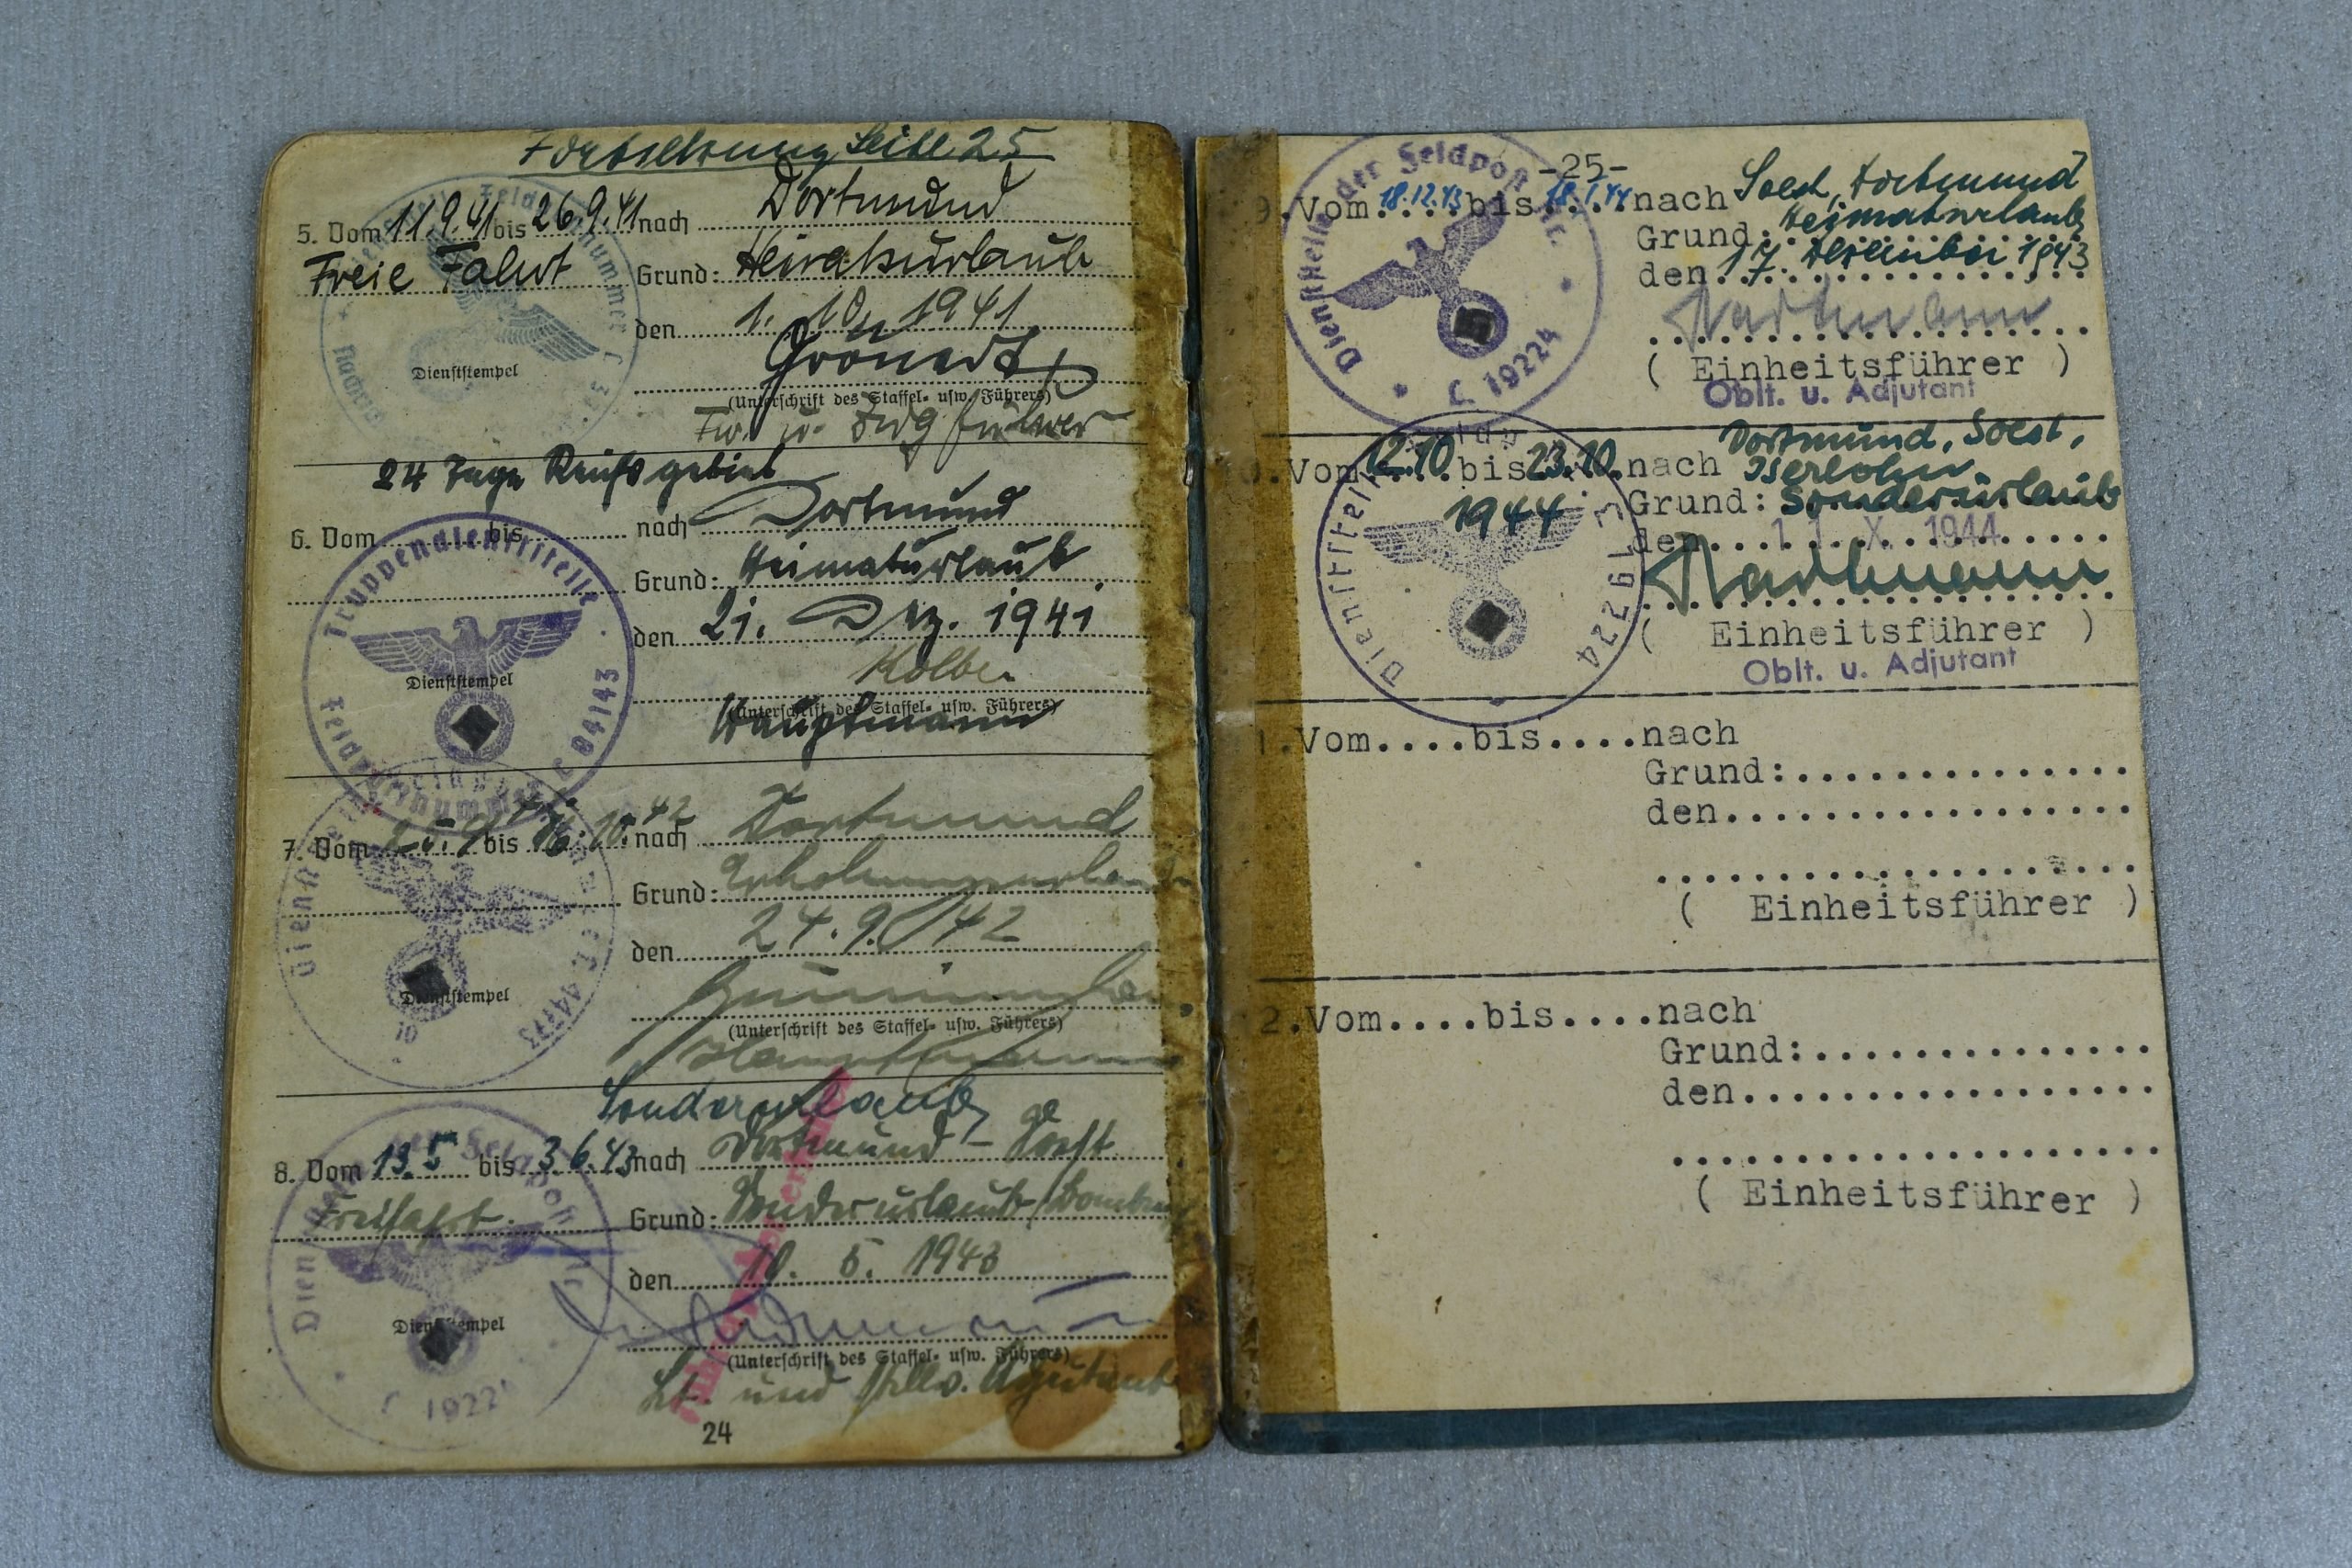 Fortsetzung Seite 25
5. Vom 11.9.41 bis 26.9.41 nach Dortmund
Freie Fahrt Grund: Heiratsurlaub
den 1. 10. 1941
Dienststempel
(Unterschrift des Staffel- usw. Führers)
Fw. u. Zugführer
24 Tage Reichsgebiet
6. Vom bis nach Dortmund
Grund: Heimaturlaub
den 21. Dez. 1941
Truppendienststelle
Feldpostnummer L 04143
Kolbe
Dienststempel
(Unterschrift des Staffel- usw. Führers)
Hauptmann
7. Vom 25.9. bis 16.10.42 nach Dortmund
Grund: Erholungsurlaub
den 24.9.42
Dienststempel
(Unterschrift des Staffel- usw. Führers)
Hauptmann
Sonderurlaub
8. Vom 13.5 bis 3.6.43 nach Dortmund - Soest
Freifahrt. Grund: Sonderurlaub
den 10. 5. 1943
Dienststempel
(Unterschrift des Staffel- usw. Führers)
Lt. und stellv. Adjutant
24
-25-
Dienststelle der Feldpost Nr.
L 19224
9.Vom 18.12.43 bis 18.1.44 nach Soest, Dortmund
Grund: Heimaturlaub
den 17. Dezember 1943
Hartmann
( Einheitsführer )
Oblt. u. Adjutant
0.Vom 12.10 bis 23.10. nach Dortmund, Soest,
Iserlohn
1944 Grund: Sonderurlaub
den 11. X. 1944
Hartmann
Dienststelle
L 19224
( Einheitsführer )
Oblt. u. Adjutant
1.Vom....bis....nach
Grund:...............
den..................
( Einheitsführer )
2.Vom....bis....nach
Grund:...............
den..................
( Einheitsführer )